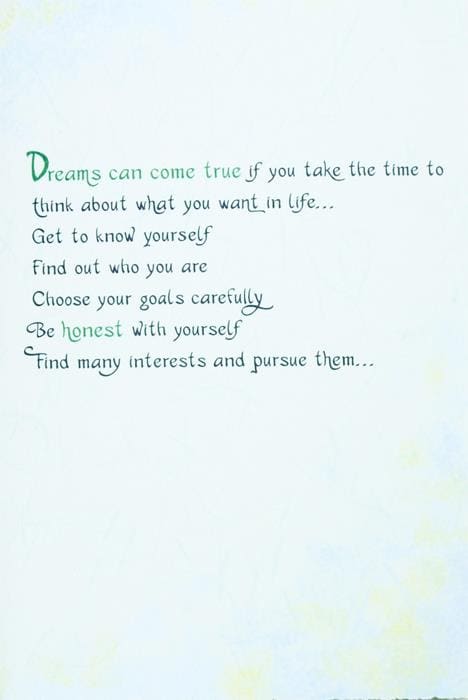 Dreams can come true if you take the time to
think about what you want in life...
Get to know yourself
Find out who you are
Choose your goals carefully
Be honest with yourself
Find many interests and pursue them...